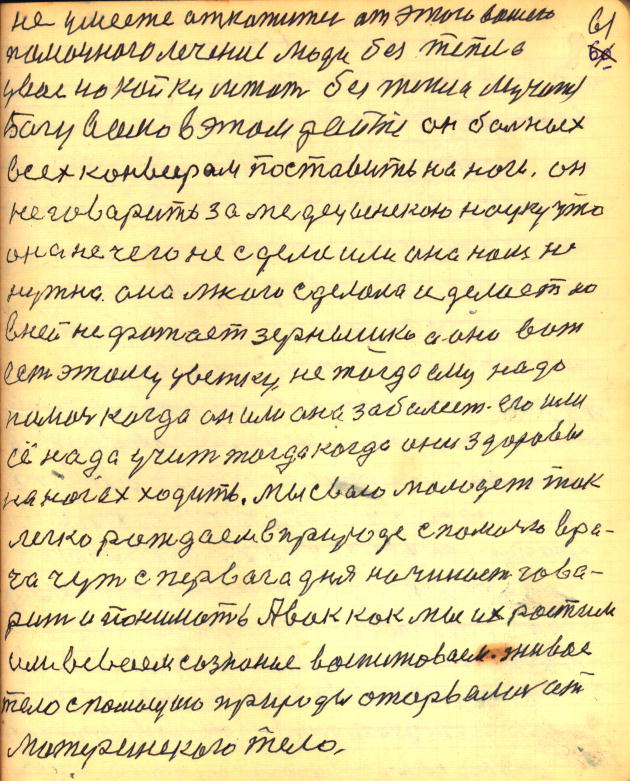 не умеете откотитис от этого вашего 61
помочного лечение люди без тепла
на койки лежат без тепла мучают
Богу в этом дайте он болних
всех конвеерам поставить на ноги. он
не говарить за медецинскою науку что
она нечего не сдела или она нам не
нужна. она много сделала и делает но
в ней не фатает зернышко а оно вот
ест этому цветку, не тогда ему надо
помоч когда он или она заболеет. его или
её нада учит тогда когда они здоровы
на ногах ходить. Мы свою молодеж так
легко рождаем в природе с помочю вра-
ча чут с первага дня начинает гова-
рит и понимать А вот как мы их ростим
или в своем сознание воспитоваем. живое
тело с помощию природы оторвалис от
материнского тело.